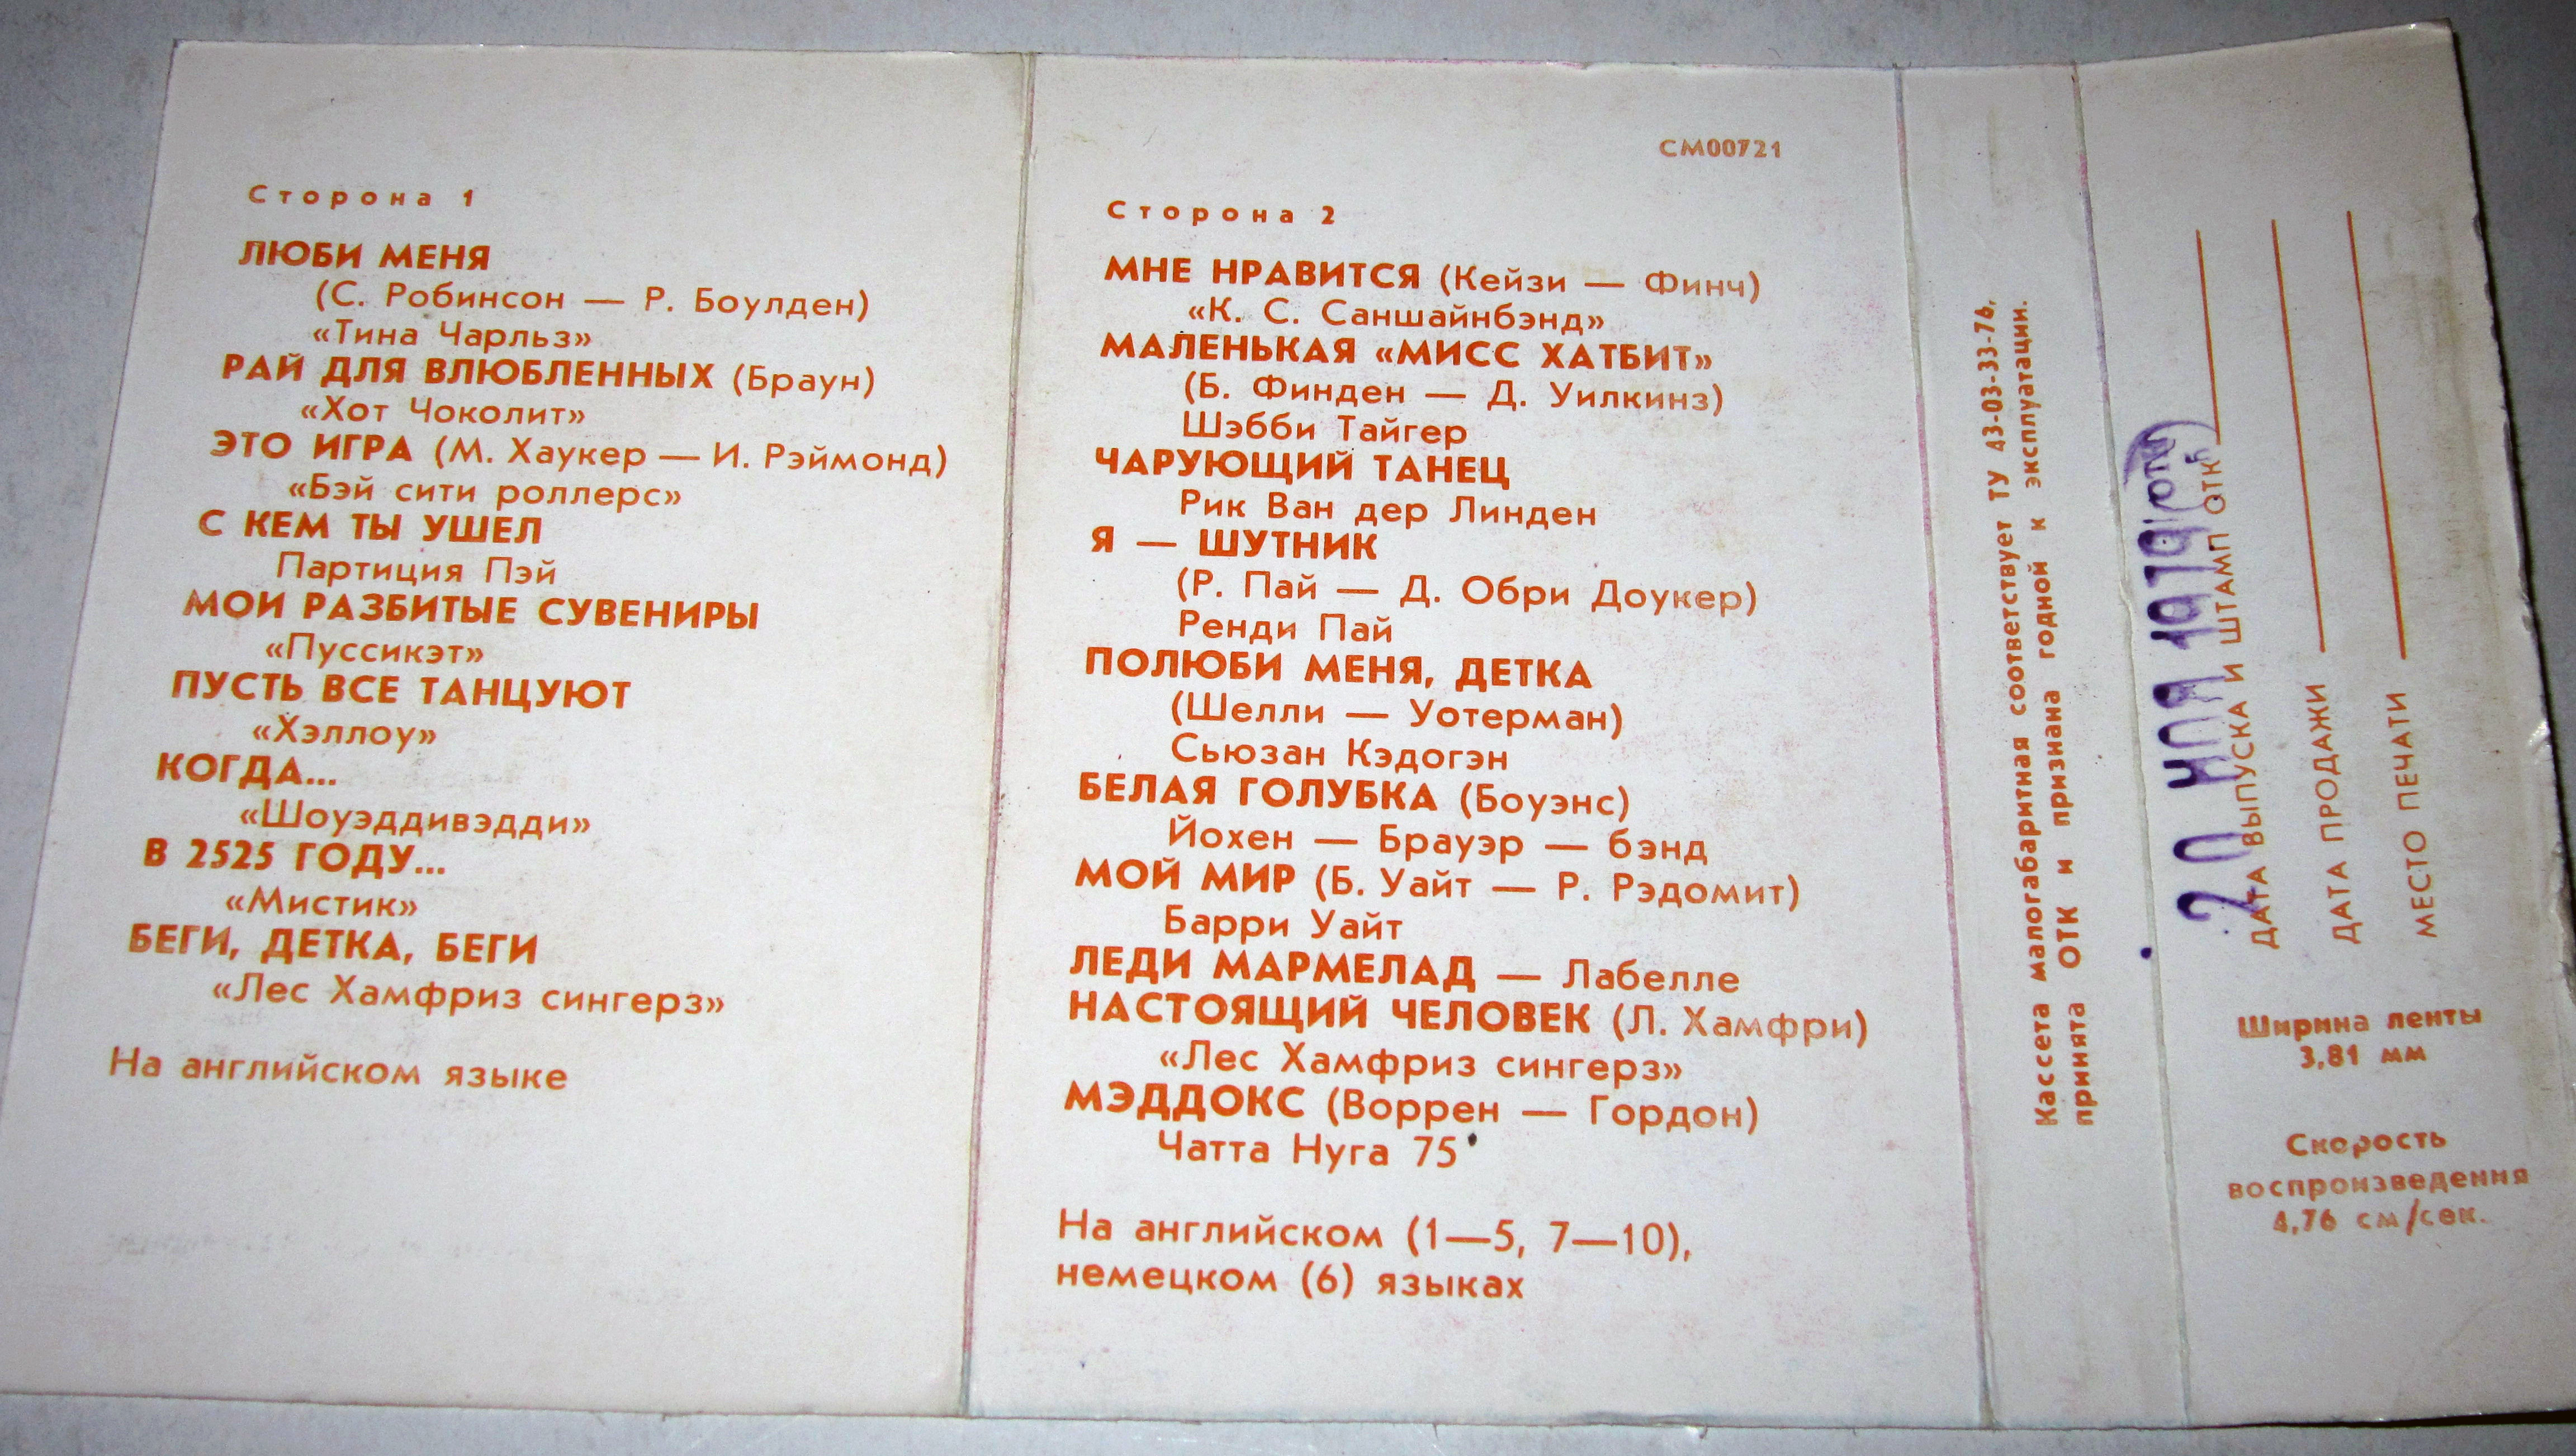 Сторона 1
ЛЮБИ МЕНЯ
(С. Робинсон — Р. Боулден)
«Тина Чарльз»
РАЙ ДЛЯ ВЛЮБЛЕННЫХ (Браун)
«Хот Чоколит»
ЭТО ИГРА (М. Хаукер — И. Рэймонд)
«Бэй сити роллерс»
С КЕМ ТЫ УШЕЛ
Партиция Пэй
МОИ РАЗБИТЫЕ СУВЕНИРЫ
«Пуссикэт»
ПУСТЬ ВСЕ ТАНЦУЮТ
«Хэллоу»
КОГДА...
«Шоуэддивэдди»
В 2525 ГОДУ...
«Мистик»
БЕГИ, ДЕТКА, БЕГИ
«Лес Хамфриз сингерз»
На английском языке
СМ00721
Сторона 2
МНЕ НРАВИТСЯ (Кейзи — Финч)
«К. С. Саншайнбэнд»
МАЛЕНЬКАЯ «МИСС ХАТБИТ»
(Б. Финден — Д. Уилкинз)
Шэбби Тайгер
ЧАРУЮЩИЙ ТАНЕЦ
Рик Ван дер Линден
Я — ШУТНИК
(Р. Пай — Д. Обри Доукер)
Ренди Пай
ПОЛЮБИ МЕНЯ, ДЕТКА
(Шелли — Уотерман)
Сьюзан Кэдогэн
БЕЛАЯ ГОЛУБКА (Боуэнс)
Йохен — Брауэр — бэнд
МОЙ МИР (Б. Уайт — Р. Рэдомит)
Барри Уайт
ЛЕДИ МАРМЕЛАД — Лабелле
НАСТОЯЩИЙ ЧЕЛОВЕК (Л. Хамфри)
«Лес Хамфриз сингерз»
МЭДДОКС (Воррен — Гордон)
Чатта Нуга 75
На английском (1—5, 7—10),
немецком (6) языках
Кассета малогабаритная соответствует ТУ 43-03-33-76,
принята ОТК и признана годной к эксплуатации.
20 1979
ДАТА ВЫПУСКА И ШТАМП ОТК
ДАТА ПРОДАЖИ
МЕСТО ПЕЧАТИ
Ширина ленты
3,81 мм
Скорость
воспроизведения
4,76 см/сек.